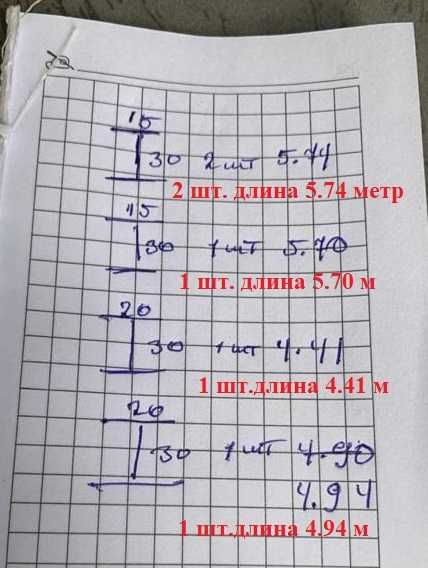 15
30 2 шт 5.74
2 шт. длина 5.74 метр
15
30 1 шт 5.70
1 шт. длина 5.70 м
20
30 1 шт 4.41
1 шт.длина 4.41 м
20
30 1 шт 4.90
4.94
1 шт.длина 4.94 м